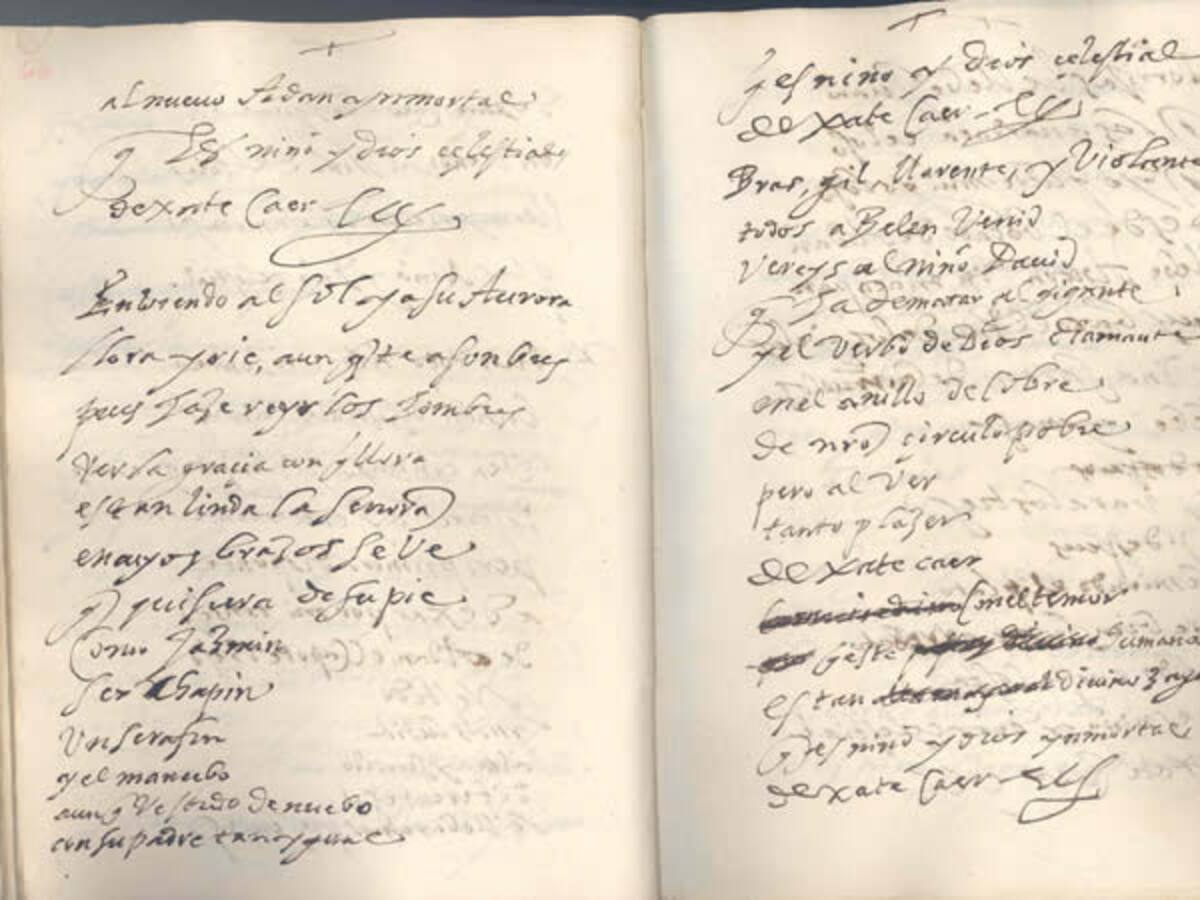 al nuevo Adan ynmortal
q es niño y dios celestial
dexate Caer
Enbiendo al sol y a su Aurora
llora y rie, aun q te asonbres
pues haze reyr los hombres
ver la gracia con q llora
es tan linda la señora
en cuyos brazos se ve
q quisiera de su pie
Como Jazmin
ser Chapin
Un serafin
y el mancebo
aun q Vestido de nuebo
con su padre tan ygual
q es niño y dios celestial
dexate Caer
Bras, gil Llorente, y Violante
todos a Belen Venid
vereys al niño David
q ha de matar al gigante
y el Verbo de Dios diamante
en el anillo de cobre
de nro circulo pobre
pero al Ver
tanto plazer
dexate caer
con el temor
q este humano
es tan divino
q es niño y dios ynmortal
dexate Caer